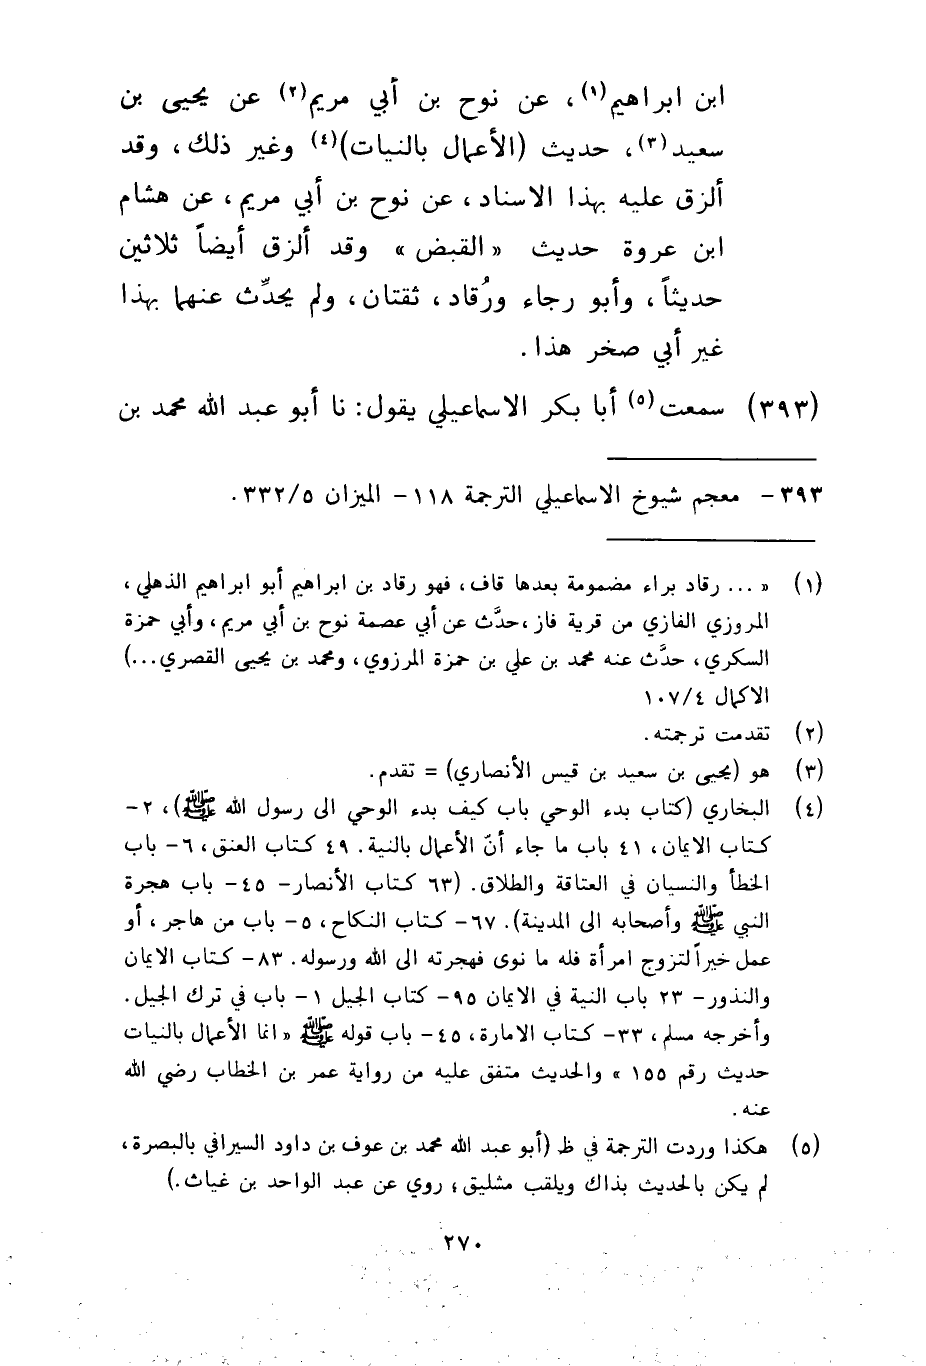 ابن ابراهيم(١)، عن نوح بن أبي مريم(٢) عن يحيى بن
سعيد(٣)، حديث (الأعمال بالنيات)(٤) وغير ذلك، وقد
ألزق عليه بهذا الاسناد، عن نوح بن أبي مريم، عن هشام
ابن عروة حديث « القبض » وقد ألزق أيضاً ثلاثين
حديثاً، وأبو رجاء ورُقاد، ثقتان، ولم يحدِّث عنهما بهذا
غير أبي صخر هذا.
(٣٩٣) سمعت(٥) أبا بكر الاسماعيلي يقول: نا أبو عبد الله محمد بن
٣٩٣- معجم شيوخ الاسماعيلي الترجمة ١١٨- الميزان ٣٣٢/٥.
(١) « ... رقاد براء مضمومة بعدها قاف، فهو رقاد بن ابراهيم أبو ابراهيم الذهلي،
المروزي الفازي من قرية فاز، حدَّث عن أبي عصمة نوح بن أبي مريم، وأبي حمزة
السكري، حدَّث عنه محمد بن علي بن حمزة المرزوي، ومحمد بن يحيى القصري...)
الاكمال ١٠٧/٤
(٢) تقدمت ترجمته.
(٣) هو (يحيى بن سعيد بن قيس الأنصاري) = تقدم.
(٤) البخاري (كتاب بدء الوحي باب كيف بدء الوحي الى رسول الله ﷺ)، ٢-
كتاب الايمان، ٤١ باب ما جاء أنّ الأعمال بالنية. ٤٩ كتاب العنق، ٦- باب
الخطأ والنسيان في العتاقة والطلاق. (٦٣ كتاب الأنصار- ٤٥- باب هجرة
النبي ﷺ وأصحابه الى المدينة). ٦٧- كتاب النكاح، ٥- باب من هاجر، أو
عمل خيراً لتزوج امرأة فله ما نوى فهجرته الى الله ورسوله. ٨٣- كتاب الايمان
والنذور- ٢٣ باب النية في الايمان ٩٥- كتاب الجيل ١- باب في ترك الجيل.
وأخرجه مسلم، ٣٣- كتاب الامارة، ٤٥- باب قوله ﷺ « انما الأعمال بالنيات
حديث رقم ١٥٥ » والحديث متفق عليه من رواية عمر بن الخطاب رضي الله
عنه.
(٥) هكذا وردت الترجمة في ظ (أبو عبد الله محمد بن عوف بن داود السيرافي بالبصرة،
لم يكن بالحديث بذاك ويلقب مشليق؛ روي عن عبد الواحد بن غياث.)
٢٧٠